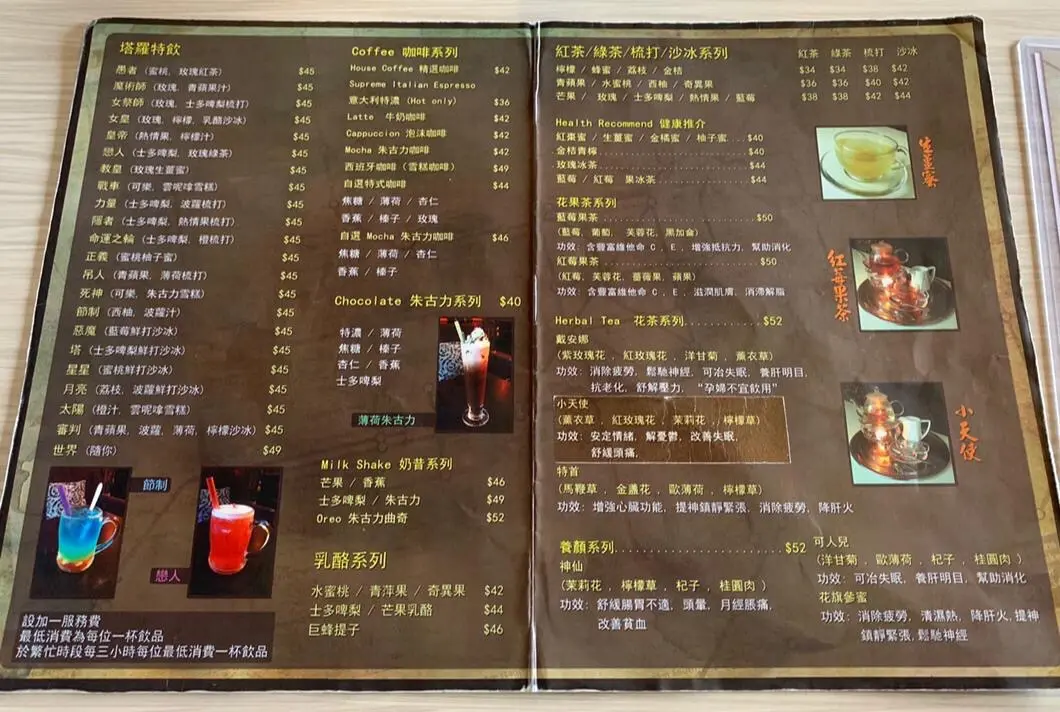 塔羅特飲
愚者 (蜜桃, 玫瑰紅茶) $45
魔術師 (玫瑰, 青蘋果汁) $45
女祭師 (玫瑰, 士多啤梨梳打) $45
女皇 (玫瑰, 檸檬, 乳酪沙冰) $45
皇帝 (熱情果, 檸檬汁) $45
戀人 (士多啤梨, 玫瑰綠茶) $45
教皇 (玫瑰生薑蜜) $45
戰車 (可樂, 雲呢嗱雪糕) $45
力量 (士多啤梨, 菠蘿梳打) $45
隱者 (士多啤梨, 熱情果梳打) $45
命運之輪 (士多啤梨, 橙梳打) $45
正義 (蜜桃柚子蜜) $45
吊人 (青蘋果, 薄荷梳打) $45
死神 (可樂, 朱古力雪糕) $45
節制 (西柚, 波蘿汁) $45
惡魔 (藍莓鮮打沙冰) $45
塔 (士多啤梨鮮打沙冰) $45
星星 (蜜桃鮮打沙冰) $45
月亮 (荔枝, 波蘿鮮打沙冰) $45
太陽 (橙汁, 雲呢嗱雪糕) $45
審判 (青蘋果, 波蘿, 薄荷, 檸檬沙冰) $45
世界 (隨你) $49
節制
戀人
設加一服務費
最低消費為每位一杯飲品
於繁忙時段每三小時每位最低消費一杯飲品
Coffee 咖啡系列
House Coffee 精選咖啡 $42
Supreme Italian Espresso
意大利特濃 (Hot only) $36
Latte 牛奶咖啡 $42
Cappuccion 泡沫咖啡 $42
Mocha 朱古力咖啡 $42
西班牙咖啡 (雪糕咖啡) $49
自選特式咖啡 $44
焦糖 / 薄荷 / 杏仁
香蕉 / 榛子 / 玫瑰
自選 Mocha 朱古力咖啡 $46
焦糖 / 薄荷 / 杏仁
香蕉 / 榛子
Chocolate 朱古力系列 $40
特濃 / 薄荷
焦糖 / 榛子
杏仁 / 香蕉
士多啤梨
薄荷朱古力
Milk Shake 奶昔系列
芒果 / 香蕉 $46
士多啤梨 / 朱古力 $49
Oreo 朱古力曲奇 $52
乳酪系列
水蜜桃 / 青萍果 / 奇異果 $42
士多啤梨 / 芒果乳酪 $44
巨蜂提子 $46
紅茶/綠茶/梳打/沙冰系列 紅茶 綠茶 梳打 沙冰
檸檬 / 蜂蜜 / 荔枝 / 金桔 $34 $34 $38 $42
青蘋果 / 水蜜桃 / 西柚 / 奇異果 $36 $36 $40 $42
芒果 / 玫瑰 / 士多啤梨 / 熱情果 / 藍莓 $38 $38 $42 $44
Health Recommend 健康推介
紅棗蜜 / 生薑蜜 / 金橘蜜 / 柚子蜜...$40
金桔青檸........................$40
玫瑰冰茶........................$44
藍莓 / 紅莓 果冰茶..............$44
生薑蜜
花果茶系列
藍莓果茶........................$50
(藍莓, 葡萄, 芙蓉花, 黑加侖)
功效: 含豐富維他命 C , E , 增強抵抗力, 幫助消化
紅莓果茶........................$50
(紅莓, 芙蓉花, 薔薇果, 蘋果)
功效: 含豐富維他命 C , E , 滋潤肌膚, 消滯解脂
紅莓果茶
Herbal Tea 花茶系列............$52
戴安娜
(紫玫瑰花 , 紅玫瑰花 , 洋甘菊 , 薰衣草)
功效: 消除疲勞, 鬆馳神經, 可冶失眠, 養肝明目,
抗老化, 舒解壓力, “孕婦不宜飲用”
小天使
(薰衣草 , 紅玫瑰花 , 茉莉花 , 檸檬草)
功效: 安定情緒, 解憂鬱, 改善失眠,
舒緩頭痛,
小天使
特首
(馬鞭草 , 金盞花 , 歐薄荷 , 檸檬草)
功效: 增強心臟功能, 提神鎮靜緊張, 消除疲勞, 降肝火
養顏系列........................$52
神仙
(茉莉花 , 檸檬草 , 杞子 , 桂圓肉 )
功效: 舒緩腸胃不適, 頭暈, 月經脹痛,
改善貧血
可人兒
(洋甘菊 , 歐薄荷 , 杞子 , 桂圓肉 )
功效: 可冶失眠, 養肝明目, 幫助消化
花旗參蜜
功效: 消除疲勞, 清濕熱, 降肝火,提神
鎮靜緊張,鬆馳神經